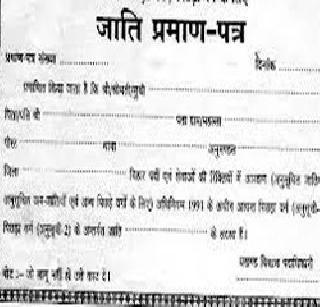 जाति प्रमाण-पत्र
प्रमाण-पत्र संख्या .................... दिनांक ....................
प्रमाणित किया जाता है कि श्री/श्रीमती/सुश्री ....................
पिता/पति श्री .................... पता ग्राम/मोहल्ला ....................
पोस्ट .................... थाना .................... अनुमण्डल ....................
जिला .................... बिहार पदों एवं सेवाओं की रिक्तियों में आरक्षण (अनुसूचित जाति
अनुसूचित जन-जातियों एवं अन्य पिछड़े वर्गों के लिए) अधिनियम 1991 के अधीन अत्यन्त पिछड़ा वर्ग (अनुसूची-
पिछड़ा वर्ग (अनुसूची-2) के अन्तर्गत जाति .................... के सदस्य हैं।
प्रखण्ड विकास पदाधिकारी
नोट :- जो लागू नहीं हो उसे काट दें।